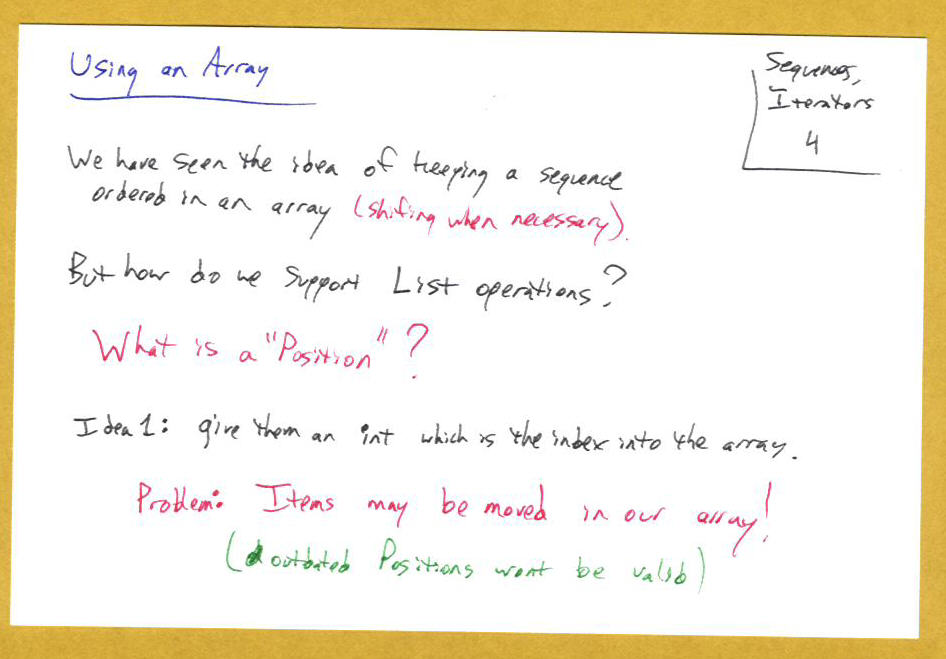 Using an Array
Sequences,
Iterators
4
We have seen the idea of keeping a sequence
ordered in an array (shifing when necessary).
But how do we support List operations?
What is a "Position"?
Idea 1: give them an int which is the index into the array.
Problem: Items may be moved in our array!
(outdated Positions wont be valid)